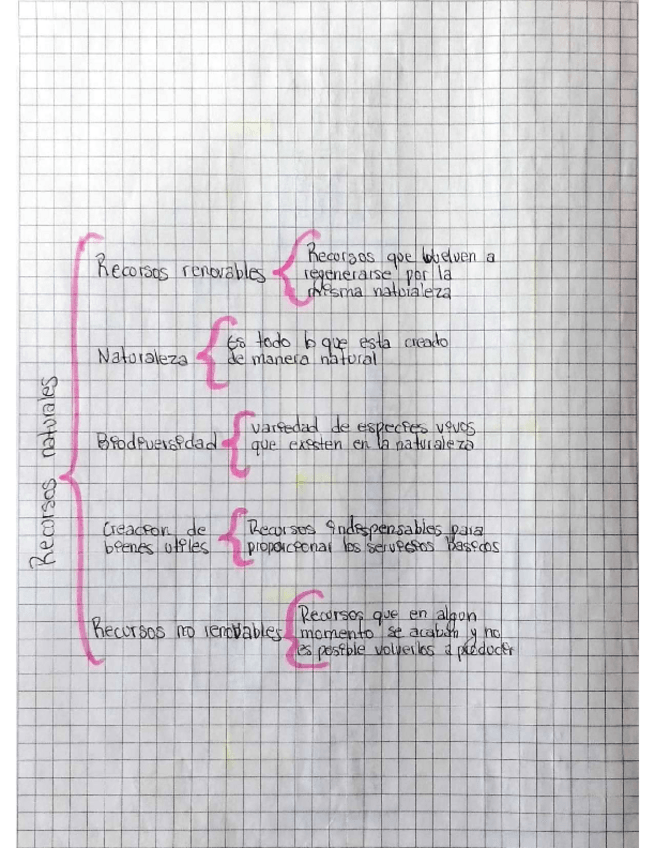 Recursos naturales
Recursos renovables
Recursos que vuelven a
regenerarse por la
misma naturaleza
Naturaleza
Es todo lo que esta creado
de manera natural
Biodiversidad
variedad de especies vivos
que existen en la naturaleza
Creacion de
bienes utiles
Recursos indespensables para
proporcionar los servicios Basicos
Recursos no renovables
Recursos que en algun
momento se acaban y no
es posible volverlos a producir